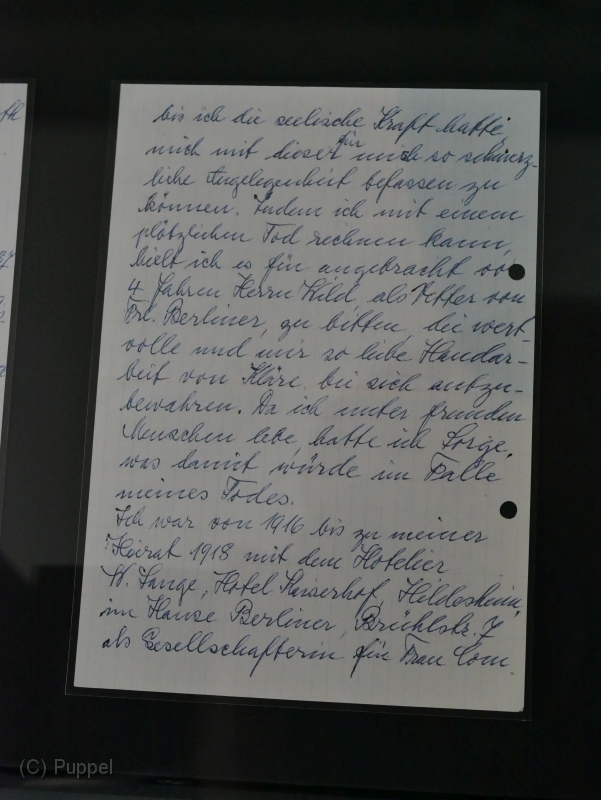 bis ich die seelische Kraft hatte
mich mit dieser für mich so schmerz-
liche Angelegenheit befassen zu
können. Indem ich mit einem
plötzlichen Tod rechnen kann,
hielt ich es für angebracht vor
4 Jahren Herrn Wild, als Vetter von
Frl. Berliner, zu bitten, die wert-
volle und mir so liebe Handar-
beit von Kläre bei sich aufzu-
bewahren. Da ich unter fremden
Menschen lebe, hatte ich Sorge,
was damit würde im Falle
meines Todes.
Ich war von 1916 bis zu meiner
Heirat 1918 mit dem Hotelier
W. Lange, Hotel Kaiserhof, Hildesheim,
im Hause Berliner, Brühlstr. 7
als Gesellschafterin für Frau Com-
(C) Puppel